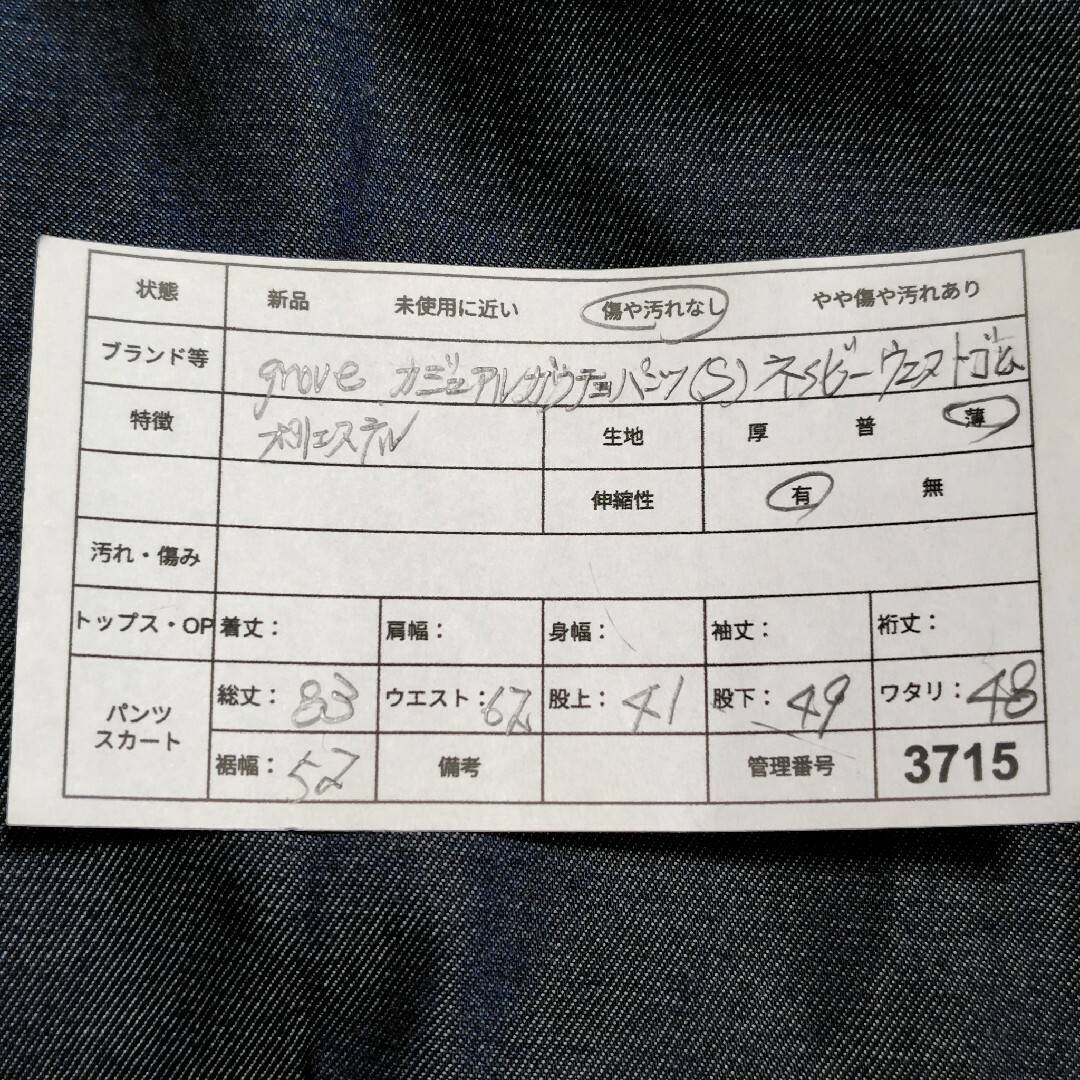 状態 新品 未使用に近い 傷や汚れなし やや傷や汚れあり
ブランド等 grove カジュアルガウチョパンツ(S) ネイビーウエストゴム
特徴 ポリエステル 生地 厚 普 薄
伸縮性 有 無
汚れ・傷み
トップス・OP 着丈: 肩幅: 身幅: 袖丈: 裄丈:
パンツ スカート 総丈: 83 ウエスト: 62 股上: 41 股下: 49 ワタリ: 48
裾幅: 52 備考 管理番号 3715